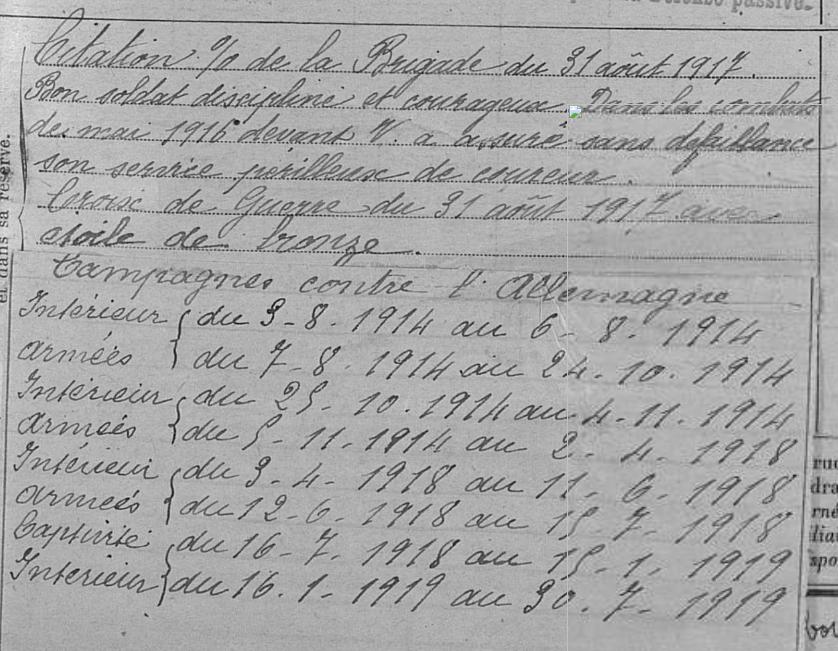 et dans sa réserve.
passive.
Citation % de la Brigade du 31 août 1917.
Bon soldat discipliné et courageux. Dans les combats
de mai 1916 devant V. a assuré sans défaillance
son service périlleux de coureur.
Croix de Guerre du 31 août 1917 avec
étoile de bronze.
Campagnes contre l'Allemagne
Intérieur du 3-8-1914 au 6-8-1914
Armées du 7-8-1914 au 24-10-1914
Intérieur du 25-10-1914 au 4-11-1914
Armées du 5-11-1914 au 2-4-1918
Intérieur du 3-4-1918 au 11-6-1918
Armées du 12-6-1918 au 15-7-1918
Captivité du 16-7-1918 au 15-1-1919
Intérieur du 16-1-1919 au 30-7-1919